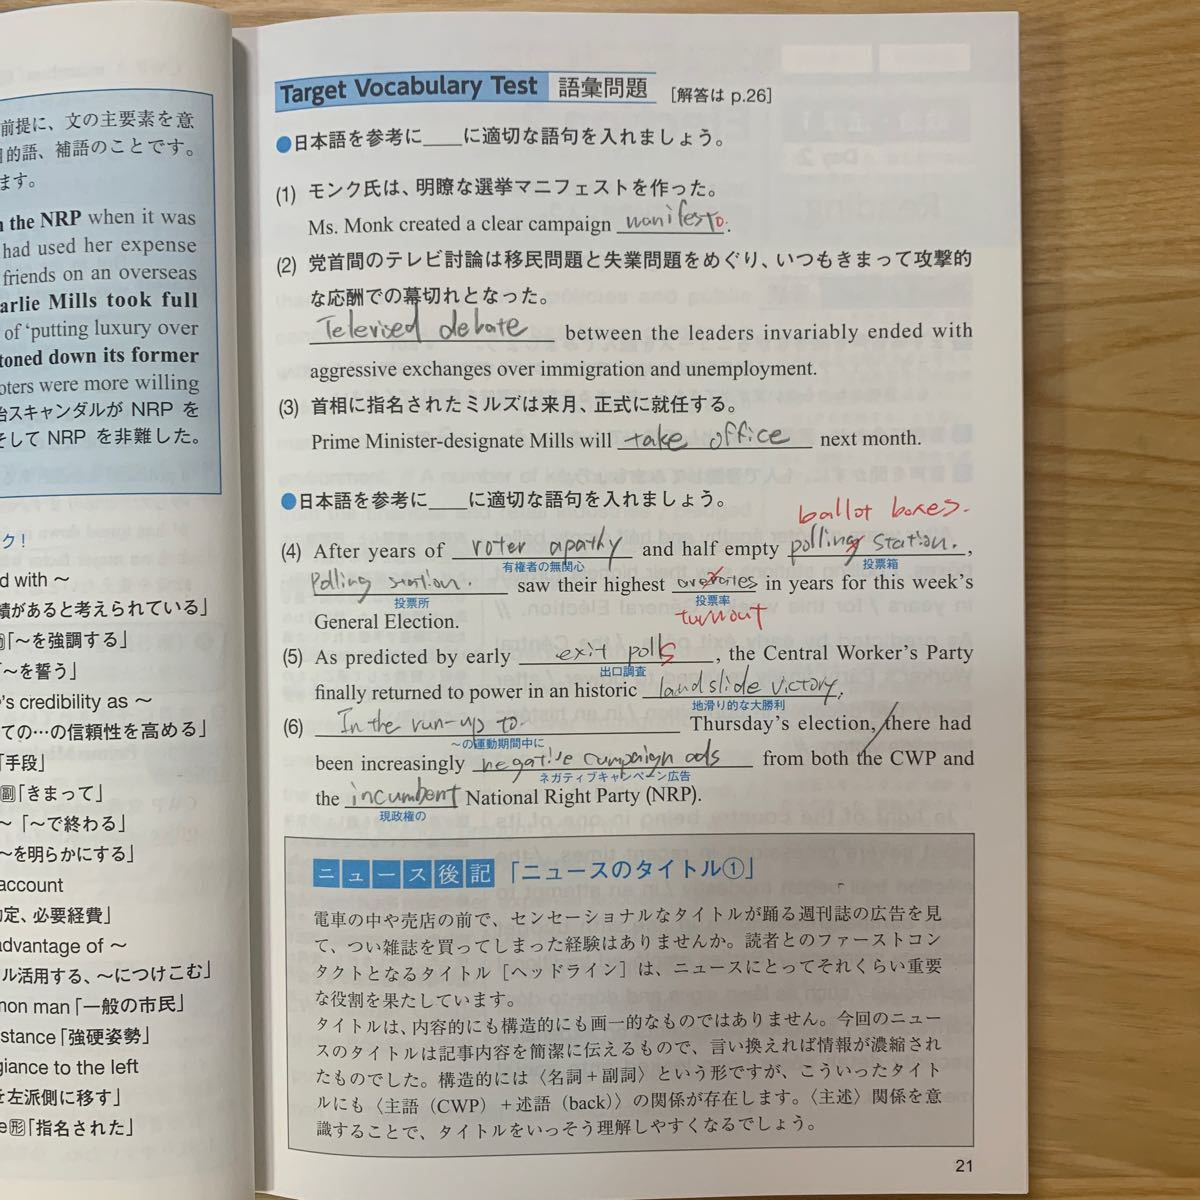 前提に、文の主要素を意
的語、補語のことです。
ます。
the NRP when it was
had used her expense
friends on an overseas
arlie Mills took full
of ‘putting luxury over
toned down its former
oters were more willing
治スキャンダルが NRP を
そして NRP を非難した。
ク!
d with ～
績があると考えられている」
「～を強調する」
「～を誓う」
's credibility as ～
ての…の信頼性を高める」
「手段」
副「きまって」
～「～で終わる」
～を明らかにする」
account
定、必要経費」
advantage of ～
ル活用する、～につけこむ」
non man「一般の市民」
stance「強硬姿勢」
giance to the left
を左派側に移す」
e形「指名された」
Target Vocabulary Test 語彙問題 [解答は p.26]
●日本語を参考に____に適切な語句を入れましょう。
(1) モンク氏は、明瞭な選挙マニフェストを作った。
Ms. Monk created a clear campaign manifesto.
(2) 党首間のテレビ討論は移民問題と失業問題をめぐり、いつもきまって攻撃的
な応酬での幕切れとなった。
Televised debate between the leaders invariably ended with
aggressive exchanges over immigration and unemployment.
(3) 首相に指名されたミルズは来月、正式に就任する。
Prime Minister-designate Mills will take office next month.
●日本語を参考に____に適切な語句を入れましょう。
ballot boxes.
(4) After years of voter apathy and half empty polling station. ,
有権者の無関心 投票箱
Polling station. saw their highest in years for this week's
投票所 投票率
General Election. turnout
(5) As predicted by early exit polls , the Central Worker's Party
出口調査
finally returned to power in an historic landslide victory.
地滑り的な大勝利
(6) In the run-up to. Thursday's election, there had
～の運動期間中に
been increasingly negative campaign ads from both the CWP and
ネガティブキャンペーン広告
the incumbent National Right Party (NRP).
現政権の
ニュース後記「ニュースのタイトル①」
電車の中や売店の前で、センセーショナルなタイトルが踊る週刊誌の広告を見
て、つい雑誌を買ってしまった経験はありませんか。読者とのファーストコン
タクトとなるタイトル[ヘッドライン]は、ニュースにとってそれくらい重要
な役割を果たしています。
タイトルは、内容的にも構造的にも画一的なものではありません。今回のニュー
スのタイトルは記事内容を簡潔に伝えるもので、言い換えれば情報が濃縮され
たものでした。構造的には〈名詞+副詞〉という形ですが、こういったタイト
ルにも〈主語(CWP)+述語(back)〉の関係が存在します。〈主述〉関係を意
識することで、タイトルをいっそう理解しやすくなるでしょう。
21